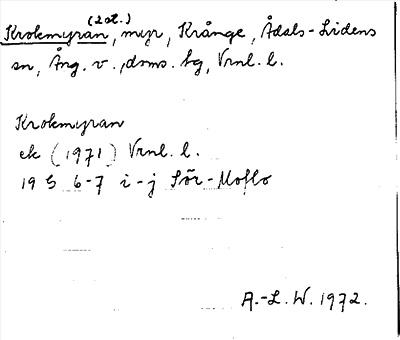 (2 st.)
Krokmyran, myr, Krånge, Ådals-Lidens
sn, Ång. v., dsms. hg, Vrnl. l.
Krokmyran
ek (1971) Vrnl. l.
19 G 6-7 i-j Sör-Moflo
A.-L. W. 1972.